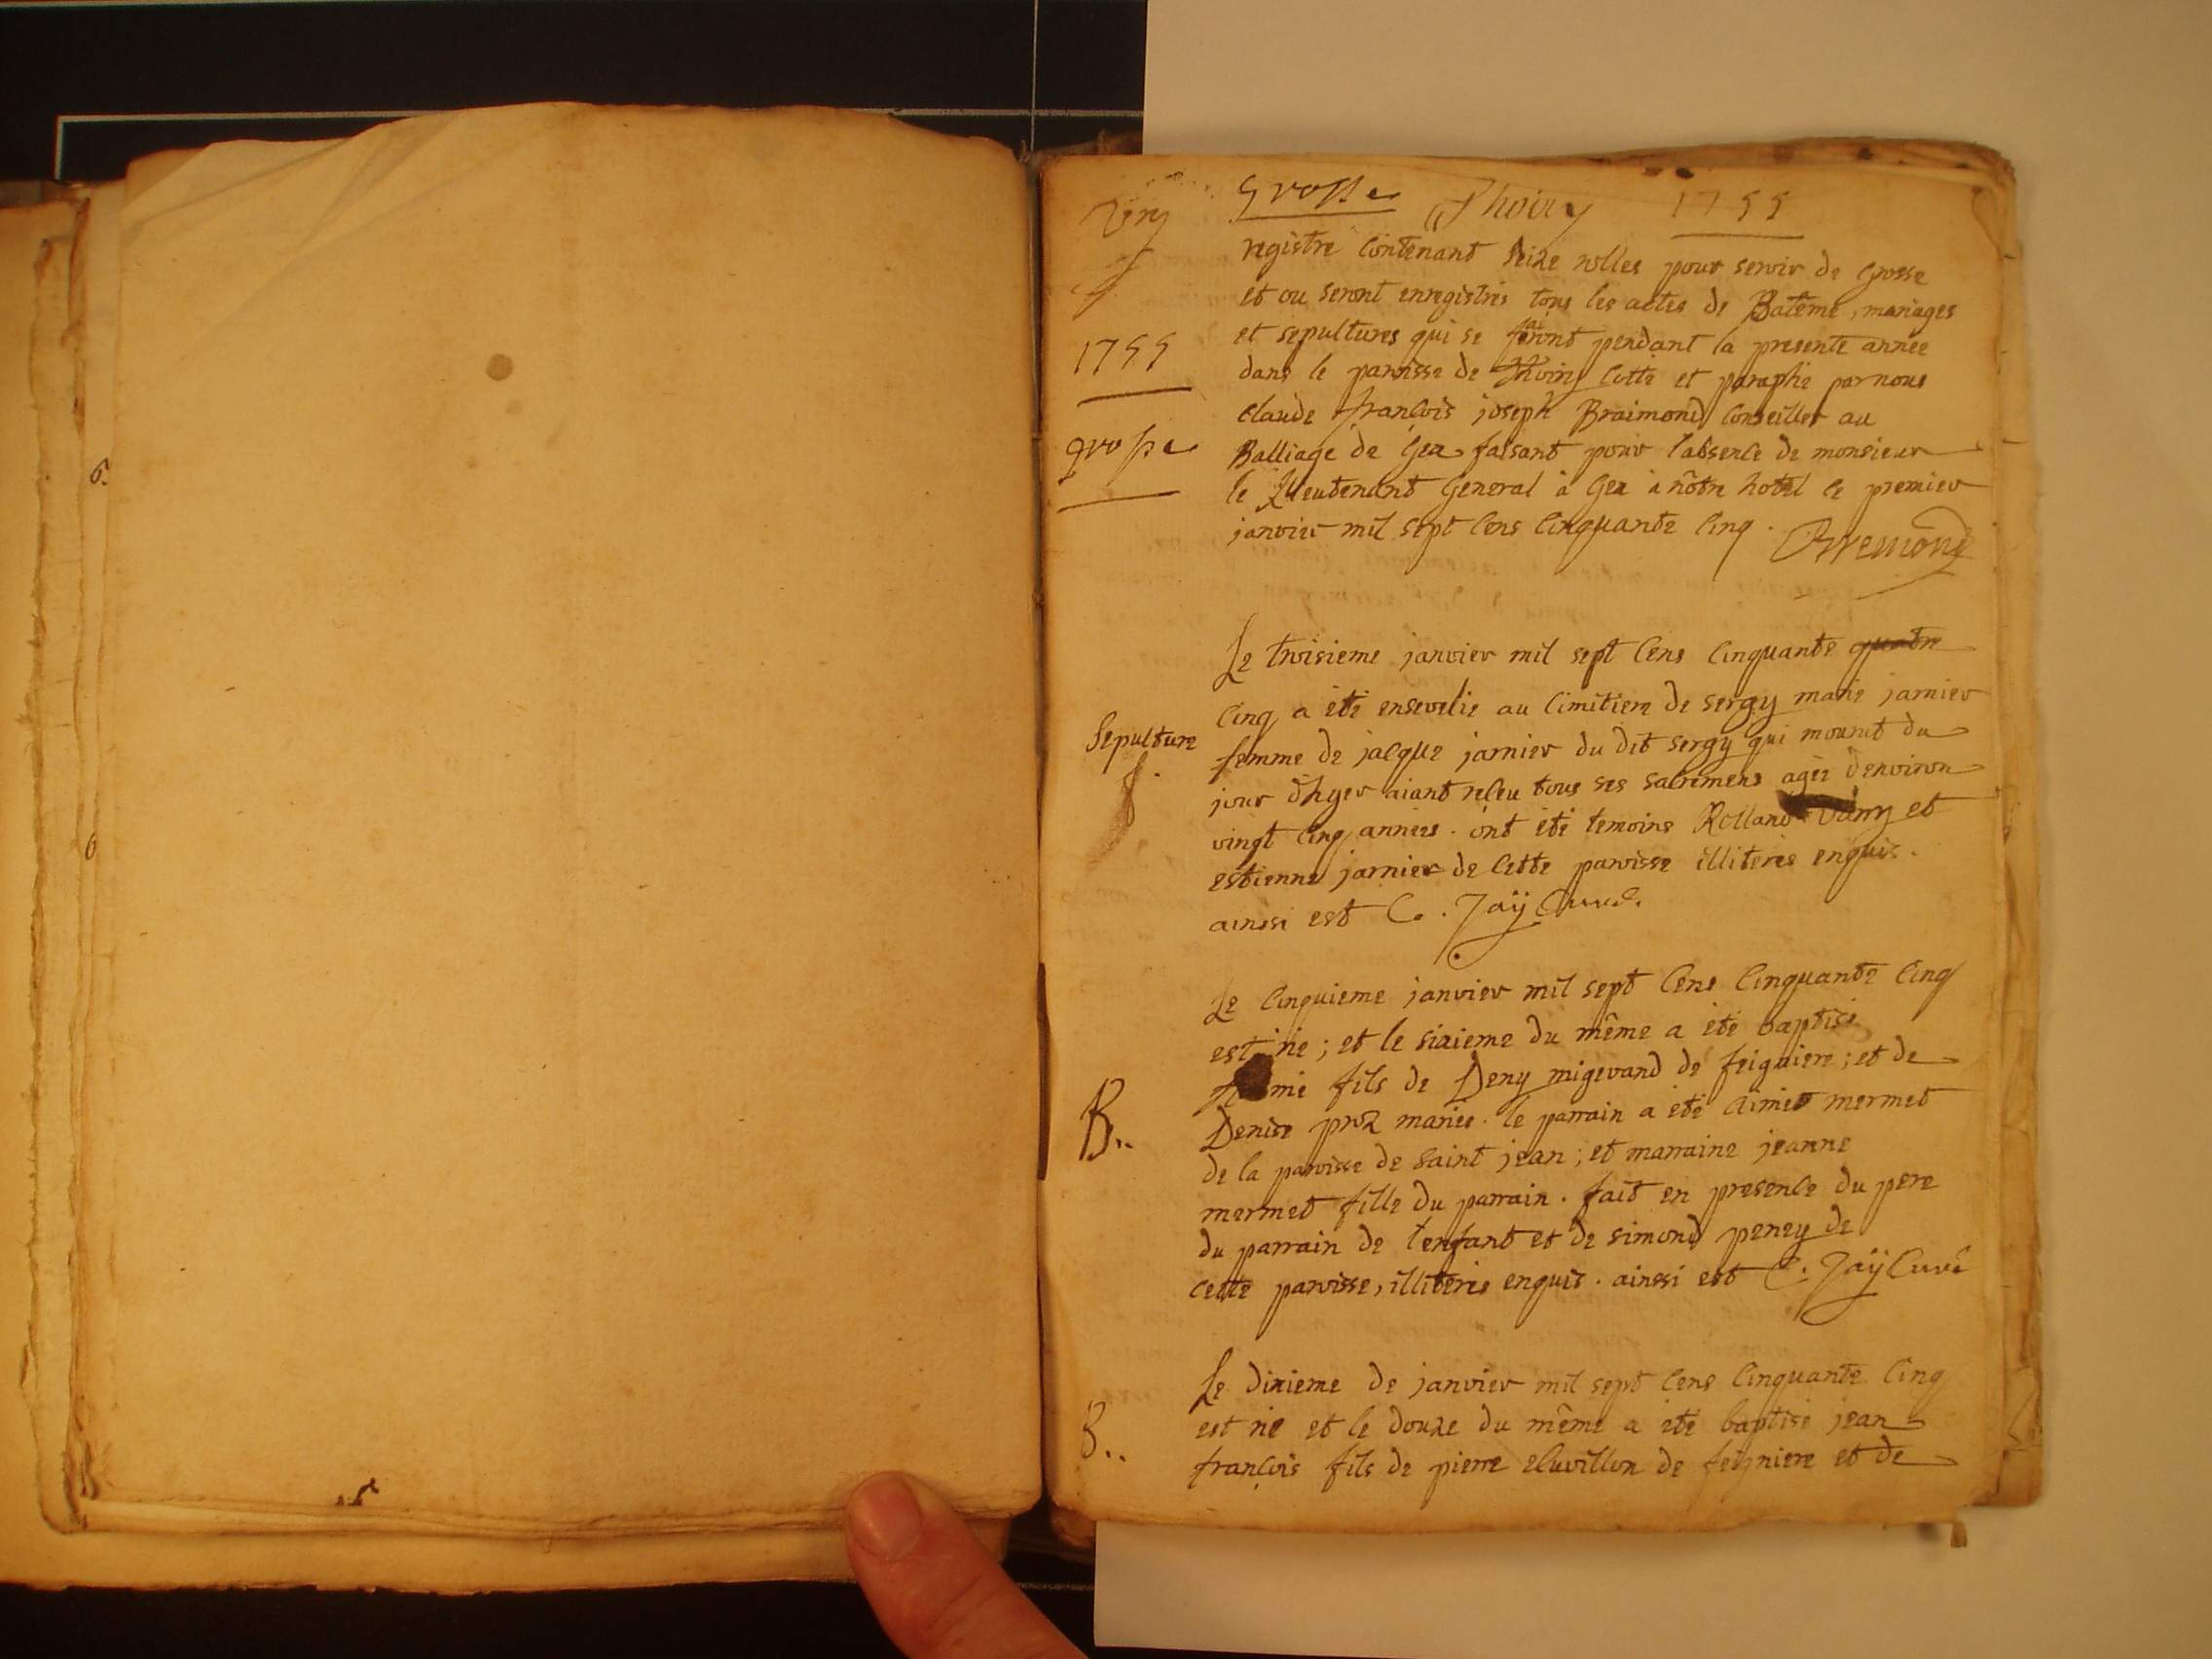 6.
6
Grosse Thoiry 1755
1755
grosse
registre contenant seize rolles pour servir de grosse
et ou seront enregistrés tous les actes de Batême, mariages
et sepultures qui se feront pendant la presente année
dans le paroisse de Thoiry cotté et paraphé par nous
claude françois joseph Braimond conseiller au
Balliage de Gex faisant pour l'absence de monsieur
le Lieutenant General à Gex à nôtre hotel le premier
janvier mil sept cens cinquante cinq.
Sepulture
Le troisieme janvier mil sept cens cinquante quatre
cinq a été ensevelie au cimitiere de sergy marie jarnier
femme de jacque jarnier du dit sergy qui mourut du
jour d'hyer aiant receu tous ses sacremens agée d'environ
vingt cinq années. ont été temoins Rolland et
estienne jarnier de cette paroisse illiterés enquis.
ainssi est C. Jaÿ Curé.
B..
Le cinquieme janvier mil sept cens cinquante cinq
est né; et le sixieme du même a été baptisé
fils de Deny migevand de feigniere; et de
Denise proz mariés. le parrain a été aimé mermet
de la paroisse de saint jean; et marraine jeanne
mermet fille du parrain. fait en presence du pere
du parrain de l'enfant et de simond peney de
cette paroisse, illiterés enquis. ainssi est C. Jaÿ Curé
B..
Le dixieme de janvier mil sept cens cinquante cinq
est né et le douze du même a été baptisé jean
françois fils de pierre de feigniere et de